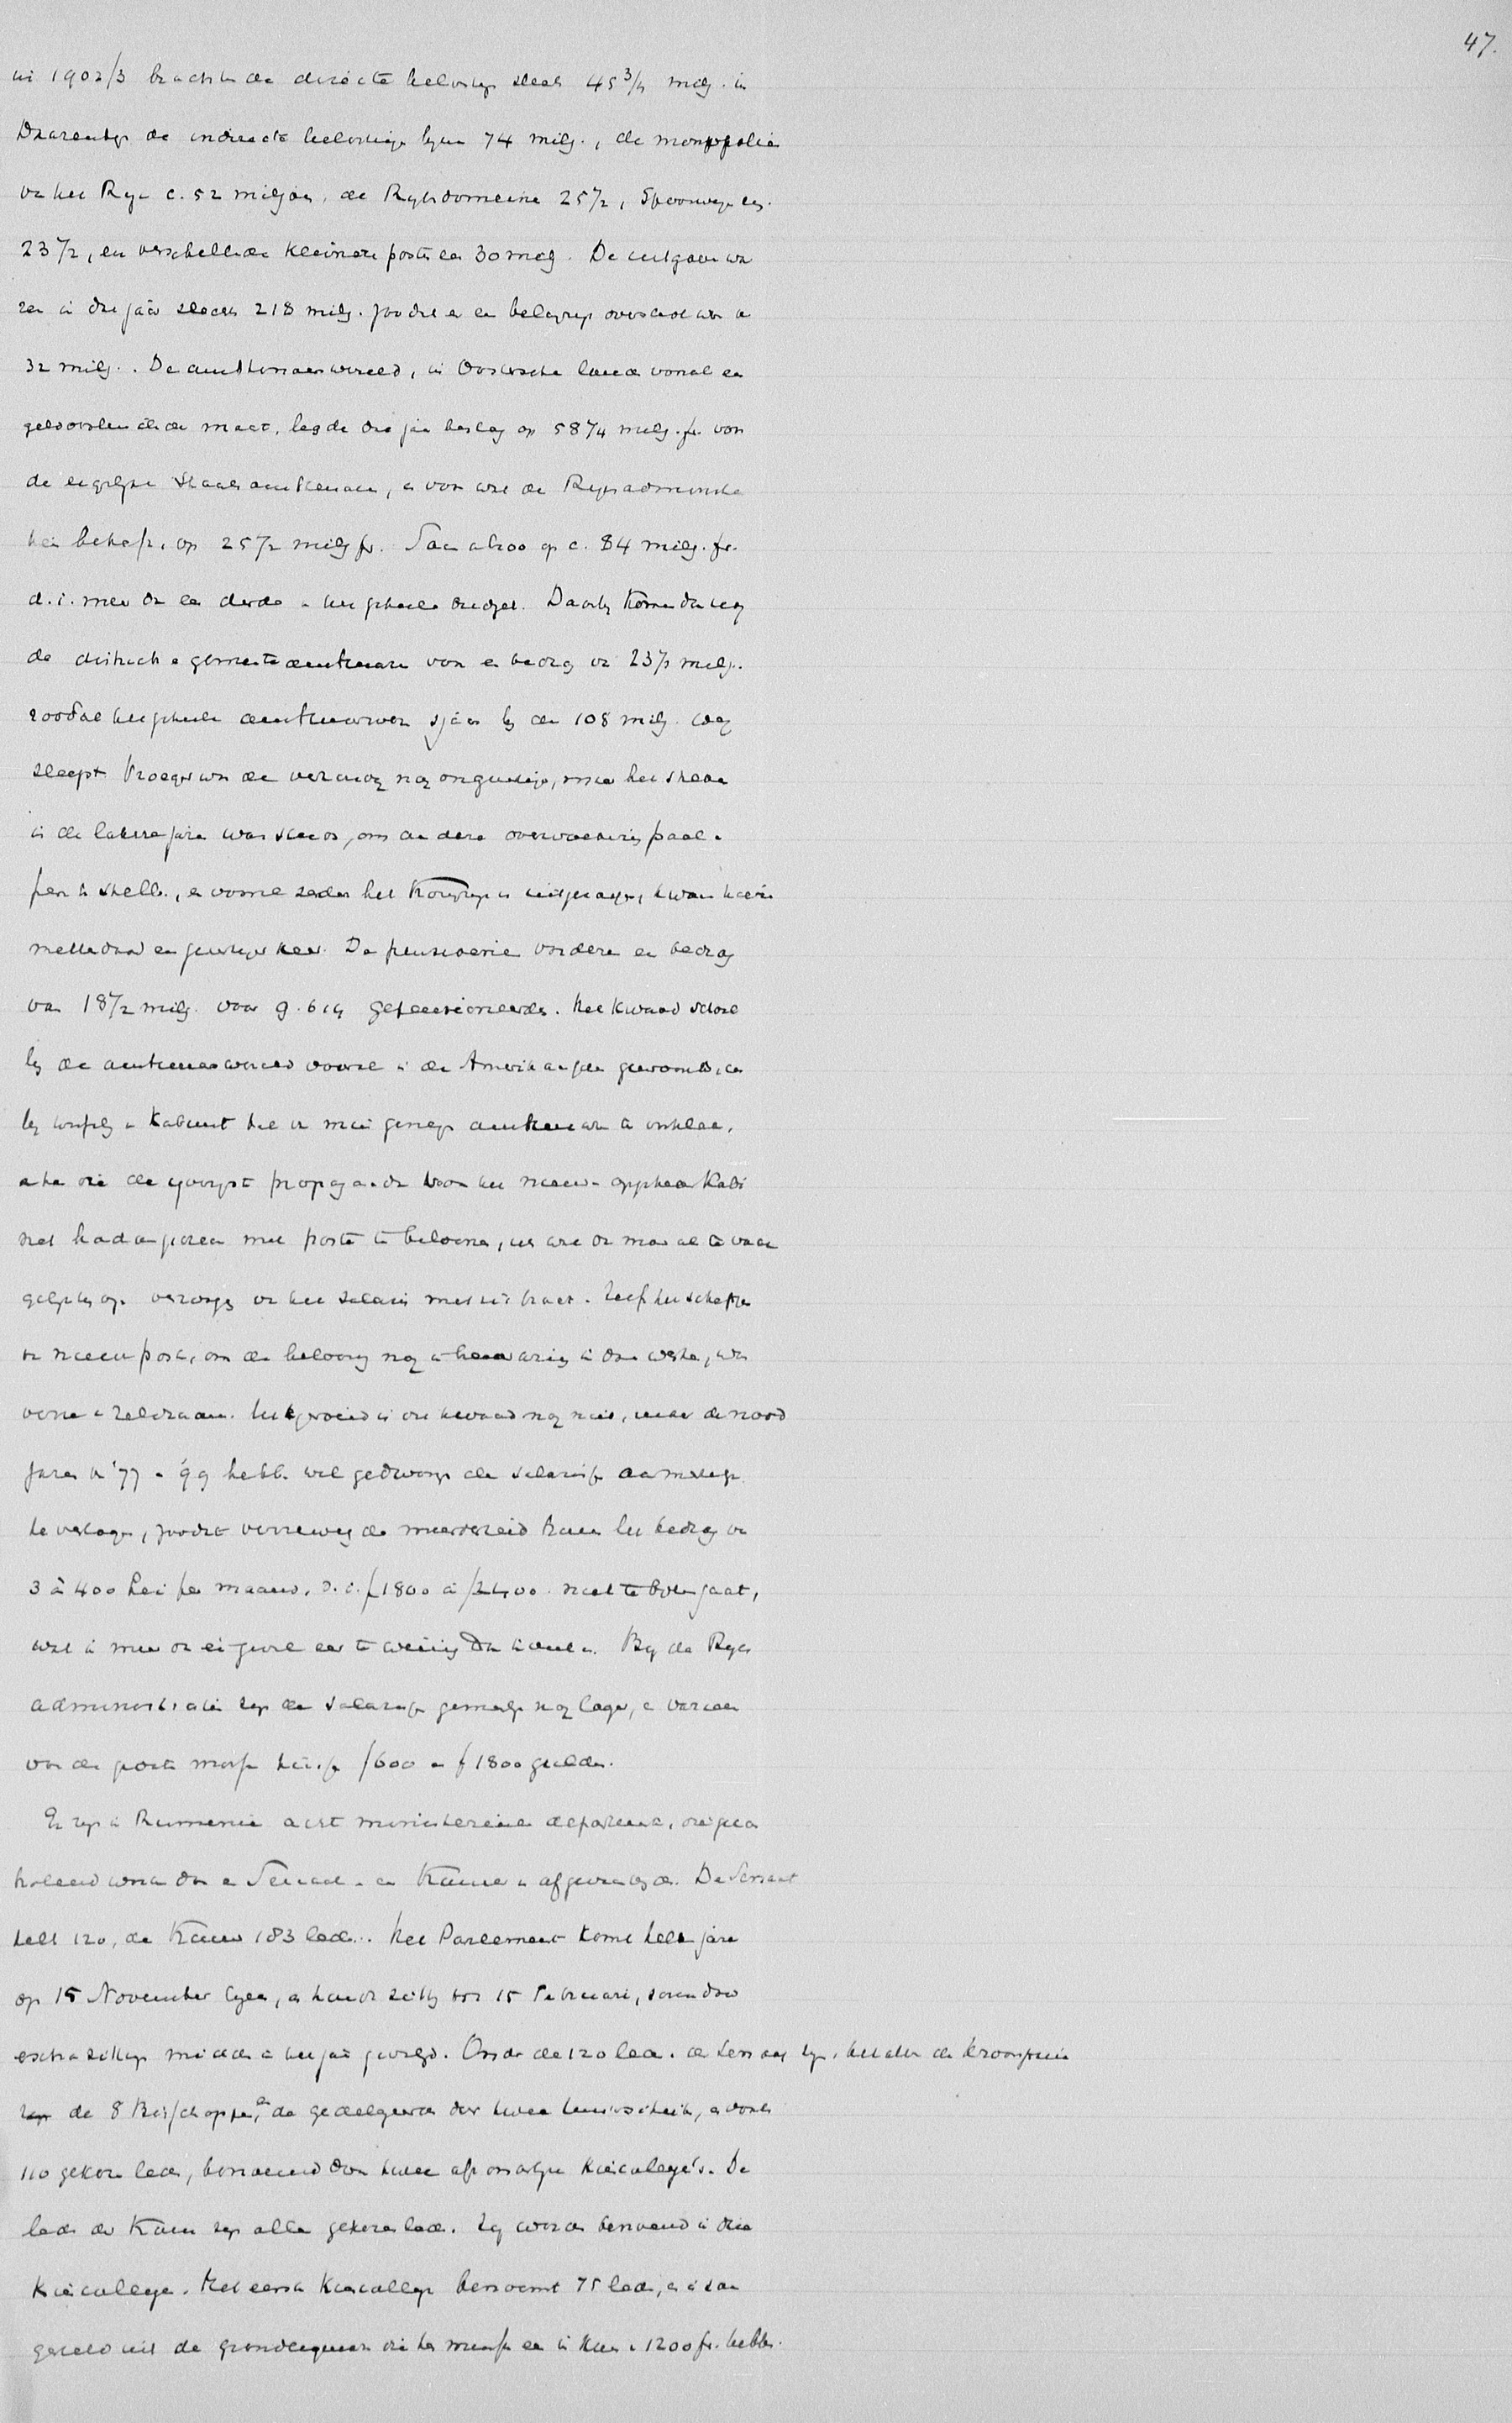 47.
in 1902/3 brachten de directe belasting slechts 45 3/4 milj. in
Daarentegen de indirecte belastingen bijna 74 milj., de monopoliën
van het Rijk c. 52 miljoen, de Rijksdomeinen 25 1/2, Spoorwegen enz.
23 1/2, en verschillende kleinere posten en 30 milj. De uitgaven wa
ren in die jaar slechts 218 milj. zoodat er een belangrijk overschot was van
32 milj. De ambtenaarswereld, in Oostersche landen vooral een
geldverslindende macht, legde dit jaar beslag op 58 1/4 milj. fr. voor
de eigenlijke Staatsambtenaren, en voor wat de Rijksadministra
tiën betreft, op 25 1/2 milj fr. Saam alzoo op c. 84 milj. fr.
d. i. meer dan een derde van het geheele budget. Daarbij komen dan nog
de district en gemeente ambtenaren voor een bedrag van 23 1/2 milj.
zoodat het geheele ambtenaarswezen 's jaars bij de 108 milj. weg
sleept. Vroeger was de verhouding nog ongunstiger, maar het streven
in de latere jaren was steeds, om aan deze overwoekering paal en
perk te stellen, en vooral sedert het Koninkrijk is uitgeroepen, kwam hierin
metterdaad een gunstige keer. De pensioenen vorderen een bedrag
van 18 1/2 milj. voor 9.614 gepensioneerden. Het kwaad school
bij de ambtenaarswereld vooral in de Amerikaansche gewoonte, om
bij wisseling van Kabinet het van min genegen ambtenaren te ontslaan,
en hen die de ijverigste propaganda voor het nieuw opgetreden Kabi
net hadden gevoerd met posten te beloonen, iets wat dan maar al te vaak
gelijk op verhooging van het salaris met uitbracht. Zelfs het scheppen
van nieuwe posten, om de belooning nog te
verre van zeldzaam. Uitgeroeid is dit kwaad nog niet, maar de nood
jaren van '77 en '99 hebben wel gedwongen de salarissen aanmerkelijk
te verlagen, zoodat verreweg de meerderheid thans het bedrag van
3 à 400 lei per maand, d. i. f 1800 à f 2400 niet te boven gaat,
wat in meer dan één geval eer te weinig dan te veel is. Bij de Rijks
administratie zijn de salarissen gemeenlijk nog lager, en varieeren
voor de posten meest tusschen f 600 en f 1800 gulden.
Er zijn in Rumenië acht ministerieele departementen, die ge
holpen worden door een Senaat en een Kamer van afgevaardigden. De Senaat
telt 120, de Kamer 183 leden. Het Parlement komt elk jaar
op 15 November bijeen, en houdt zitting tot 15 Februari, soms door
extra zittingen midden in het jaar gevolgd. Onder de 120 leden van den Senaat zijn, behalve de Kroonprins
de 8 Bisschoppen, en de gedelegeerden der twee Universiteiten, en voorts
110 gekozen leden, benoemd door twee afzonderlijke Kiescollege's. De
leden der Kamer zijn allen gekozen leden. Zij worden benoemd in drie
Kiescolleges. Het eerste Kiescollege benoemt 75 leden, en is saam
gesteld uit de grondeigenaren die ten minste een inkomen van 1200 fr. hebben.